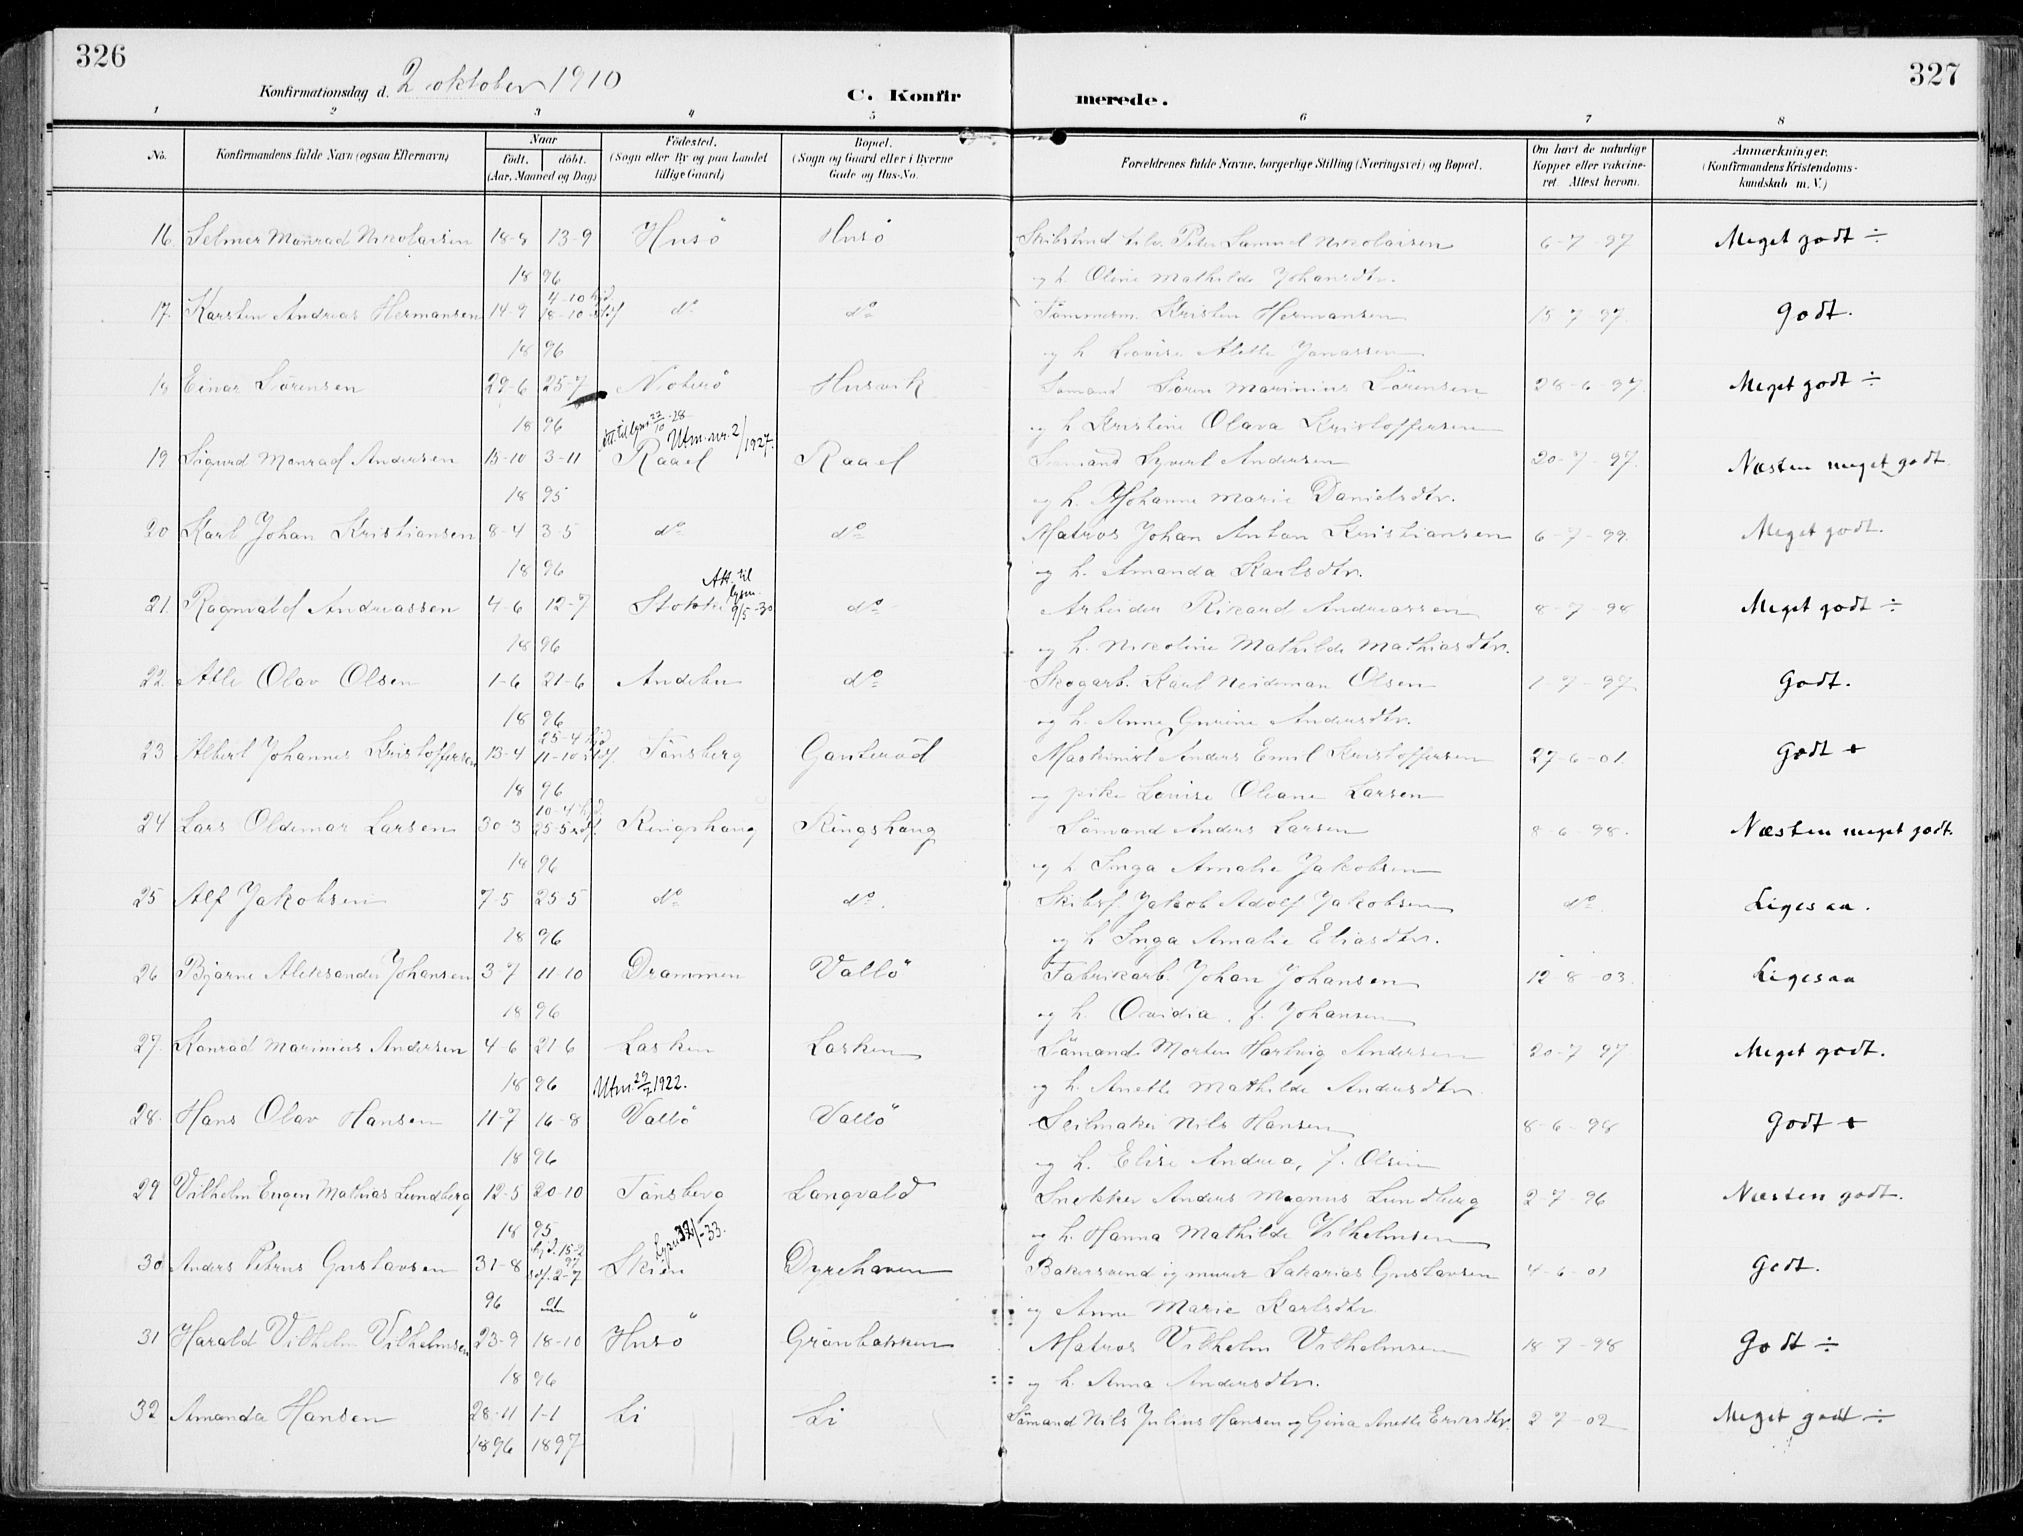 326
327
Konfirmationsdag d. 2 oktober 1910
C. Konfirmerede.
1 2 3 4 5 6 7 8
No. Konfirmandens fulde Navn (ogsaa Efternavn) Naar født. døbt. (Aar, Maaned og Dag) Fødested. (Sogn eller By og paa Landet tillige Gaard) Bopæl. (Sogn og Gaard eller i Byerne Gade og Hus-No. Forældrenes fulde Navne, borgerlige Stilling (Næringsvei) og Bopæl. Om havt de naturlige Kopper eller vakcineret Attest herom. Anmærkninger. (Konfirmandens Kristendomskundskab m. V.)
16 Selmer Monrad Nikolaisen 18-8 13-9 Husö Husö Peder Samuel Nikolaisen 6-7-97 Meget godt ÷
18 96 og h. Oline Mathilde Johansdtr.
17. Karsten Andreas Hermansen 14-9 4-10 hjd. 18-10 stdf do do Tømmerm. Kristen Hermansen 15-7-97. Godt.
18 96 og h. Lovise Alette Jonassen
18 Einar Sörensen 29-6 25-7 Nöterö Husvik Sömand Sören Marinius Sörensen 28-6-97. Meget godt ÷
18 96 og h Kristine Olava Kristoffersen
Att. til lysn. 22/10-28 Utm. nr. 2/1927.
19 Sigurd Monrad Andersen 15-10 3-11 Raael Raael Sömand Syvert Andersen 20-7-97. Næsten meget godt.
18 95 og h. Johanne Marie Danielsdtr.
20 Karl Johan Kristiansen 8-4 3-5 do do Matros Johan Anton Kristiansen 6-7-99. Meget godt.
18 96 og h. Amanda Karlsdtr.
21. Ragnvald Andreassen 4-6 12-7 Stokke Att. til lysn. 9/5-30 do Arbeider Rikard Andreassen 8-7-98 Meget godt ÷
18 96 og h. Nikoline Mathilde Mathiasdtr.
22. Atle Olav Olsen 1-6 21-6 Andebu do Skogarb. Karl Neideman Olsen 1-7-97 Godt.
18 96 og h. Anne Gurine Andersdtr.
23 Albert Johannes Kristoffersen 13-4 25-4 hjd 11-10 stdf. Tönsberg Ganteröd Maskinist Anders Emil Kristoffersen 27-6-01. Godt +
18 96 og pike Lovise Oleane Larsen
24 Lars Oldemar Larsen 30-3 10-4 hjd 25-5 stdf. Ringshaug Ringshaug Sömand Anders Larsen 8-6-98. Næsten meget godt.
18 96 og h Inga Amalie Jakobsen
25 Alf Jakobsen 7-5 25-5 do do. Skibsf. Jakob Adolf Jakobsen do. Ligesaa.
18 96 og h Inga Amalie Eliasdtr.
26 Bjarne Aleksander Johansen 3-7 11-10 Drammen Vallö Fabrikarb. Johan Johansen 12-8-03. Ligesaa
18 96 og h. Ovidia, f. Johansen
27. Konrad Marinius Andersen 4-6 21-6 Lasken Lasken Sömand Morten Hartvig Andersen 20-7 97. Meget godt.
18 96 Utm. 29/7 1922. og h. Anette Mathilde Andersdtr.
28. Hans Olav Hansen 11-7 16-8 Vallö Vallö Seilmaker Nils Hansen 8-6-98 Godt +
18 96 og h. Elise Andrea, f. Olsen
29 Vilhelm Eugen Mathias Lundberg 12-5 20-10 Tönsberg Langvald Snekker Anders Magnus Lundberg 2-7-96 Næsten godt.
18 95 og h. Hanna Mathilde Vilhelmsen
30 Anders Petrus Gustavsen 31-8 hjd. 15-2 97 stdf. 2-7 Skien Dyrehaven Bakersvend og murer Sakarias Gustavsen 4-6-01 Godt.
96 01 og Anne Marie Karlsdtr
31 Harald Vilhelm Vilhelmsen 23-9 18-10 Husö Grönbakken Matros Vilhelm Vilhelmsen 18-7-98 Godt ÷
18 96 og h. Anna Andersdtr.
32 Amanda Hansen 28-11 1-1 Li Li Sömand Nils Julius Hansen og Gina Anette 2-7-02 Meget godt ÷
1896 1897